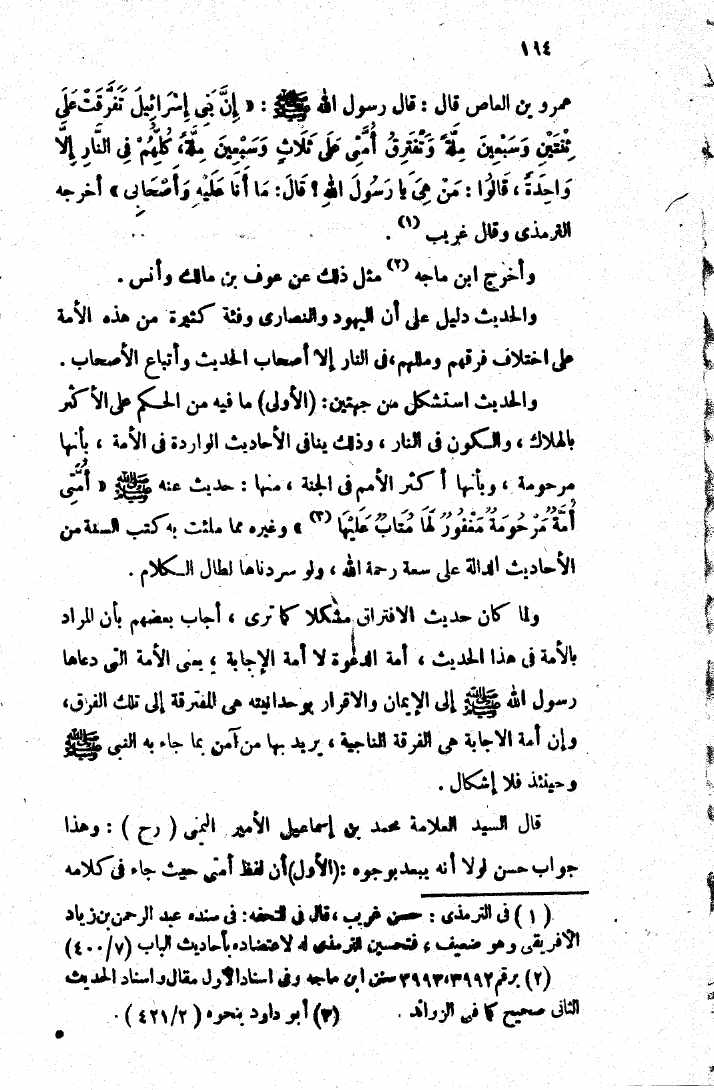 ١٦٤
عمرو بن العاص قال : قال رسول الله ﷺ : « إِنَّ بَنِي إِسْرَائِيلَ تَفَرَّقَتْ عَلَى
ثِنْتَيْنِ وَسَبْعِينَ مِلَّةً وَتَفْتَرِقُ أُمَّتِي عَلَى ثَلَاثٍ وَسَبْعِينَ مِلَّةً، كُلُّهُمْ فِى النَّارِ إِلَّا
وَاحِدَةً ، قَالُوا : مَنْ هِيَ يَا رَسُولَ اللهِ ؟ قَالَ: مَا أَنَا عَلَيْهِ وَأَصْحَابِى » أخرجه
الترمذى وقال غريب (١) .
وأخرج ابن ماجه (٢) مثل ذلك عن عوف بن مالك وأنس .
والحديث دليل على أن اليهود والنصارى وفئة كثيرة من هذه الأمة
على اختلاف فرقهم ومللهم،فى النار إلا أصحاب الحديث وأتباع الأصحاب .
والحديث استشكل من جهتين: (الأولى) ما فيه من الحكم على الأكثر
بالهلاك ، والكون فى النار ، وذلك ينافى الأحاديث الواردة فى الأمة ، بأنها
مرحومة ، وبأنها أكثر الأمم فى الجنة ، منها : حديث عنه ﷺ « أُمَّتِي
أُمَّةٌ مَرْحُومَةٌ مَغْفُورٌ لَهَا مُتَابٌ عَلَيْهَا (٣) » وغيره مما ملئت به كتب السنة من
الأحاديث الدالة على سعة رحمة الله ، ولو سردناها لطال الكلام .
ولما كان حديث الافتراق مشكلا كما ترى ، أجاب بعضهم بأن المراد
بالأمة فى هذا الحديث ، أمة الدعوة لا أمة الإجابة ، يعنى الأمة التى دعاها
رسول الله ﷺ إلى الإيمان والاقرار بوحدانيته هى المفترقة إلى تلك الفرق،
وإن أمة الاجابة هى الفرقة الناجية ، يريد بها من آمن بما جاء به النبى ﷺ
وحينئذ فلا إشكال .
قال السيد العلامة محمد بن إسماعيل الأمير اليمنى ( رح ) : وهذا
جواب حسن لولا أنه يبعد بوجوه : (الأول)أن لفظ أمتى حيث جاء فى كلامه
( ١ ) فى الترمذى : حسن غريب ، قال فى التحفه: فى سنده عبد الرحمن بن زياد
الأفريقى وهو ضعيف ، فتحسين الترمذى له لاعتضاده بأحاديث الباب (٧/٤٠٠)
(٢) برقم ٣٩٩٢،٣٩٩٣ سنن ابن ماجه وفى اسناد الأول مقال واسناد الحديث
الثانى صحيح كما فى الزوائد . (٣) أبو داود بنحوه ( ٢/٤٢١ ) .